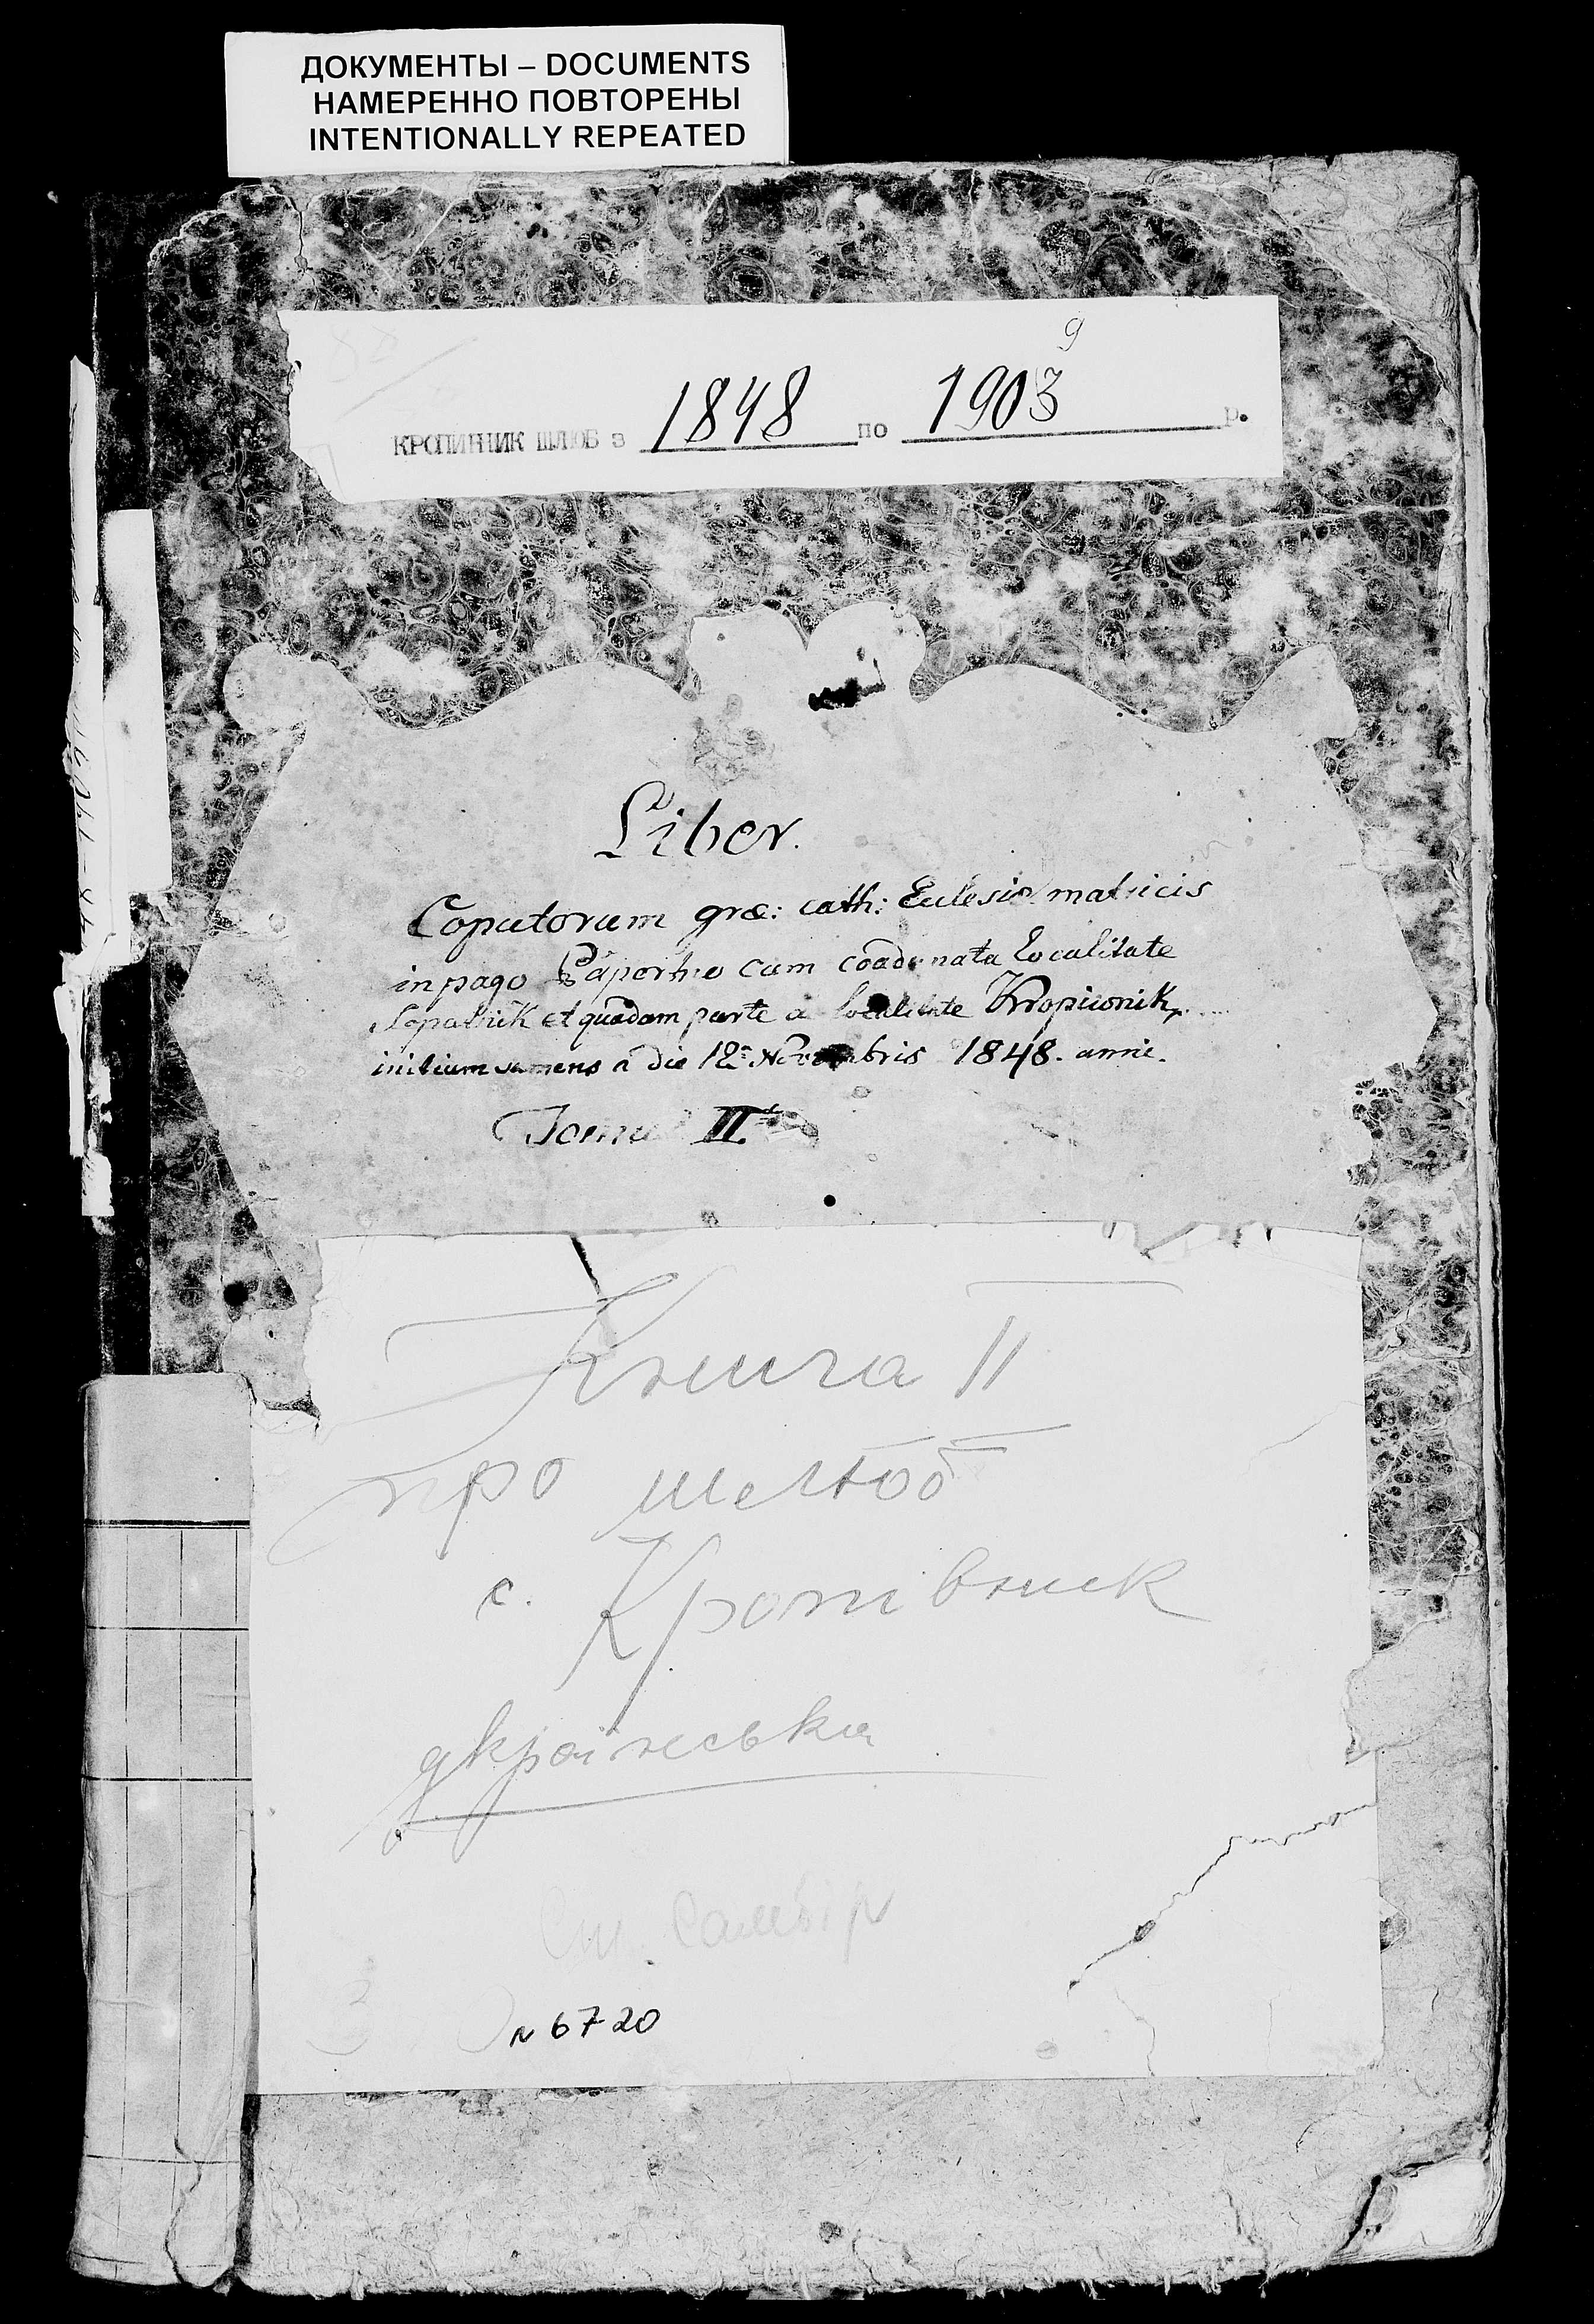 ДОКУМЕНТЫ – DOCUMENTS
НАМЕРЕННО ПОВТОРЕНЫ
INTENTIONALLY REPEATED
9
КРОПИВНИК ШЛЮБ з 1848 по 1903 р.
Liber.
Coputorum græ: cath: Eclesiæ matricis
in pago Páportno cum coadunata Localitate
Lopusnik et quadam parte a localitate Kropiwnik,
initium sumens a die 12 Novembris 1848. anni.
Tomus II
Книга II
про шлюб
с. Кропівник
українська
Ст. Самбір
N 6720